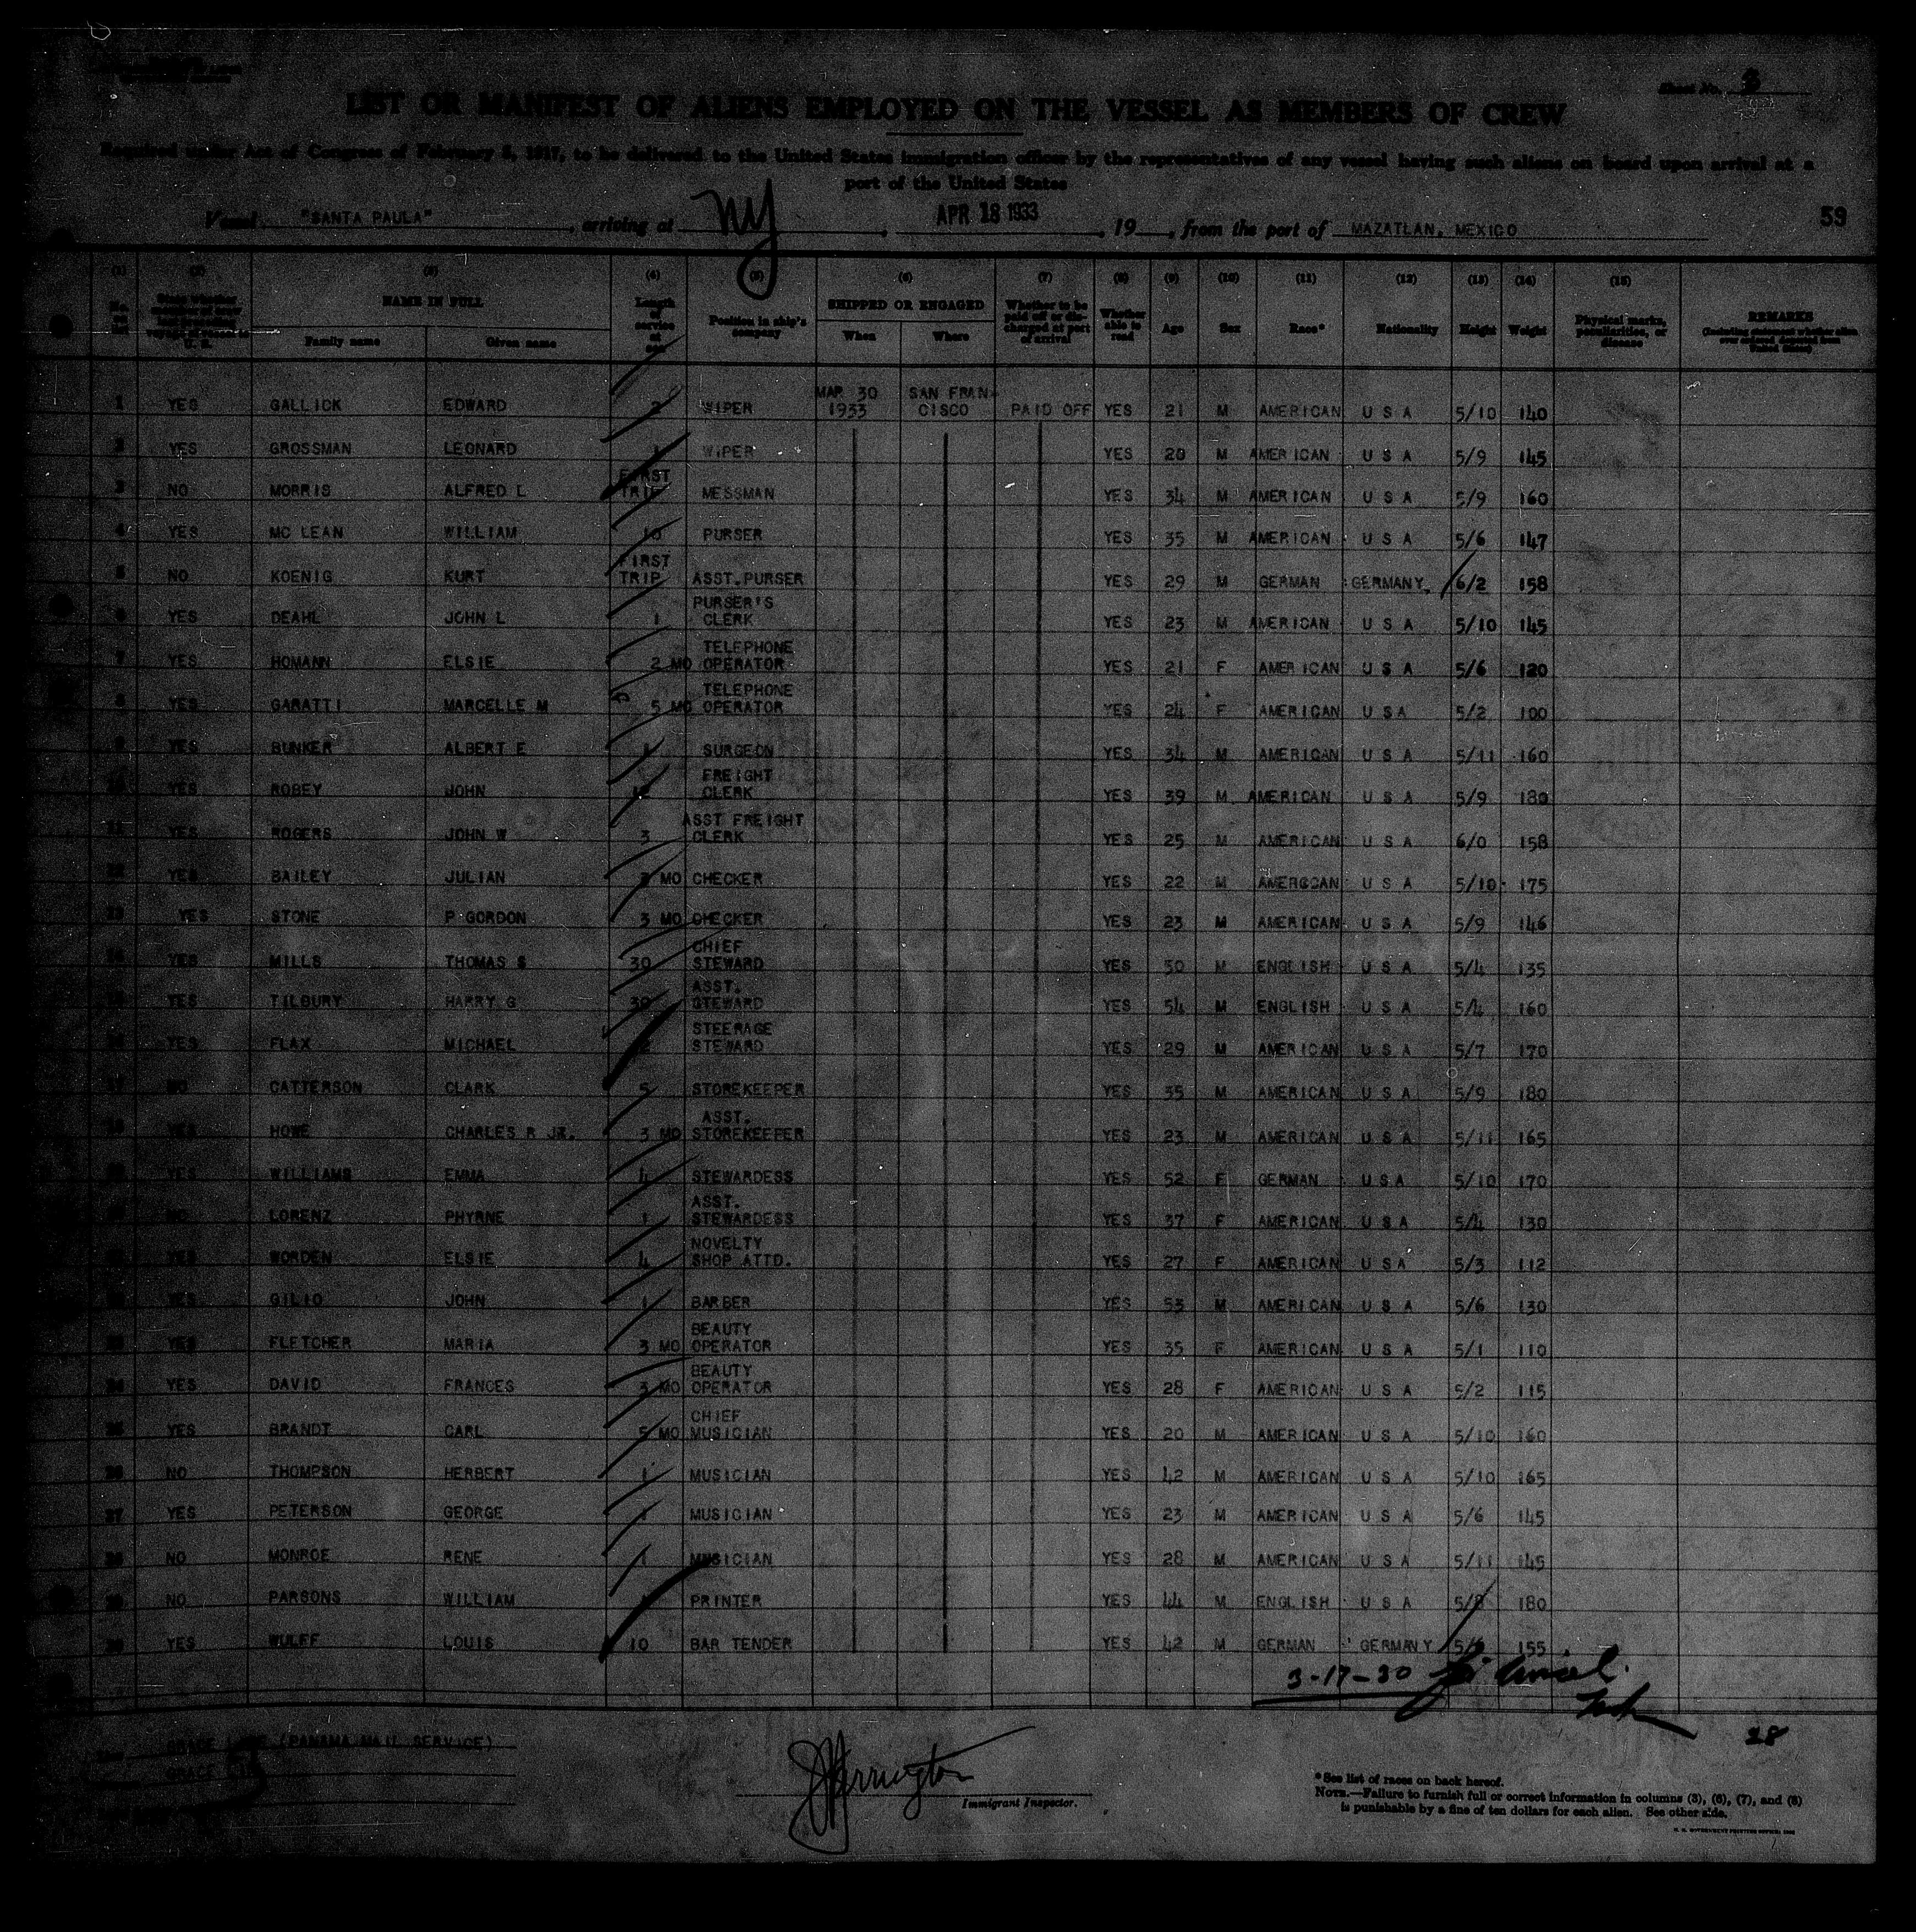 Sheet No. 3
LIST OR MANIFEST OF ALIENS EMPLOYED ON THE VESSEL AS MEMBERS OF CREW
Required under Act of Congress of February 5, 1917, to be delivered to the United States immigration officer by the representatives of any vessel having such aliens on board upon arrival at a
port of the United States
Vessel "SANTA PAULA", arriving at NY, APR 18 1933, 19, from the port of MAZATLAN, MEXICO 59
(1) (2) (3) (4) (5) (6) (7) (8) (9) (10) (11) (12) (13) (14) (15)
NAME IN FULL Family name Given name Length of service at sea Position in ship's company SHIPPED OR ENGAGED When Where Whether to be paid off or discharged at port of arrival Whether able to read Age Sex Race* Nationality Height Weight Physical marks, peculiarities, or disease REMARKS
1 YES GALLICK EDWARD 2 WIPER MAR 30 1933 SAN FRANCISCO PAID OFF YES 21 M AMERICAN U S A 5/10 140
2 YES GROSSMAN LEONARD 1 WIPER YES 20 M AMERICAN U S A 5/9 145
3 NO MORRIS ALFRED L FIRST TRIP MESSMAN YES 34 M AMERICAN U S A 5/9 160
4 YES MC LEAN WILLIAM 10 PURSER YES 35 M AMERICAN U S A 5/6 147
5 NO KOENIG KURT FIRST TRIP ASST.PURSER YES 29 M GERMAN GERMANY 6/2 158
6 YES DEAHL JOHN L 1 PURSER'S CLERK YES 23 M AMERICAN U S A 5/10 145
7 YES HOMANN ELSIE 2 MO TELEPHONE OPERATOR YES 21 F AMERICAN U S A 5/6 120
8 YES GARATTI MARCELLE M 5 MO TELEPHONE OPERATOR YES 24 F AMERICAN U S A 5/2 100
9 YES BUNKER ALBERT E 1 SURGEON YES 34 M AMERICAN U S A 5/11 160
10 YES ROBEY JOHN 12 FREIGHT CLERK YES 39 M AMERICAN U S A 5/9 180
11 YES ROGERS JOHN W 3 ASST FREIGHT CLERK YES 25 M AMERICAN U S A 6/0 158
12 YES BAILEY JULIAN 3 MO CHECKER YES 22 M AMERGCAN U S A 5/10 175
13 YES STONE P GORDON 3 MO CHECKER YES 23 M AMERICAN U S A 5/9 146
14 YES MILLS THOMAS S 30 CHIEF STEWARD YES 50 M ENGLISH U S A 5/4 135
15 YES TILBURY HARRY G 30 ASST. STEWARD YES 54 M ENGLISH U S A 5/4 160
16 YES FLAX MICHAEL 2 STEERAGE STEWARD YES 29 M AMERICAN U S A 5/7 170
17 NO CATTERSON CLARK 5 STOREKEEPER YES 35 M AMERICAN U S A 5/9 180
18 YES HOWE CHARLES R JR. 3 MO ASST. STOREKEEPER YES 23 M AMERICAN U S A 5/11 165
19 YES WILLIAMS EMMA 4 STEWARDESS YES 52 F GERMAN U S A 5/10 170
20 NO LORENZ PHYRNE 1 ASST. STEWARDESS YES 37 F AMERICAN U S A 5/4 130
21 YES WORDEN ELSIE 4 NOVELTY SHOP ATTD. YES 27 F AMERICAN U S A 5/3 112
22 YES GILIO JOHN 1 BARBER YES 53 M AMERICAN U S A 5/6 130
23 YES FLETCHER MARIA 3 MO BEAUTY OPERATOR YES 35 F AMERICAN U S A 5/1 110
24 YES DAVID FRANCES 3 MO BEAUTY OPERATOR YES 28 F AMERICAN U S A 5/2 115
25 YES BRANDT CARL 5 MO CHIEF MUSICIAN YES 20 M AMERICAN U S A 5/10 160
26 NO THOMPSON HERBERT 1 MUSICIAN YES 42 M AMERICAN U S A 5/10 165
27 YES PETERSON GEORGE 1 MUSICIAN YES 23 M AMERICAN U S A 5/6 145
28 NO MONROE RENE 1 MUSICIAN YES 28 M AMERICAN U S A 5/11 145
29 NO PARSONS WILLIAM PRINTER YES 44 M ENGLISH U S A 5/8 180
30 YES WULFF LOUIS 10 BAR TENDER YES 42 M GERMAN GERMANY 5/6 155
3-17-30
28
GRACE LINE (PANAMA MAIL SERVICE)
GRACE
Immigrant Inspector.
*See list of races on back hereof.
NOTE.—Failure to furnish full or correct information in columns (3), (6), (7), and (8)
is punishable by a fine of ten dollars for each alien. See other side.